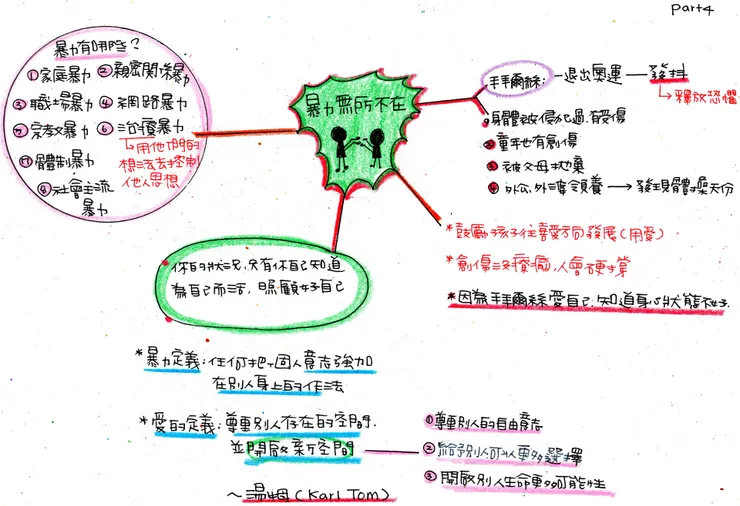 Part4
暴力有哪些?
①家庭暴力 ②親密關係暴力
③職場暴力 ④網路暴力
⑤宗教暴力 ⑥治療暴力
↳用他們的
想法去控制
他人思想
⑦體制暴力
⑧社會主流
暴力
暴力無所不在
拜爾絲:—退出奧運—發抖
↳釋放恐懼
①身體被侵犯過,有受傷
②童年也有創傷
③被父母拋棄
④外公、外婆領養→發現體操天份
*鼓勵孩子往喜愛方向發展(用愛)
*創傷沒療癒,人會硬撐
*因為拜爾絲愛自己,知道身心狀態不好.
你的狀況,只有你自己知道
為自己而活,照顧好自己
*暴力定義:任何把個人意志強加
在別人身上的作法
*愛的定義:尊重別人存在的空間.
並開啟新空間
①尊重別人的自由意志
②給予別人可以更多選擇
③開啟別人生命更多可能性
~湯姆(Karl Tom)